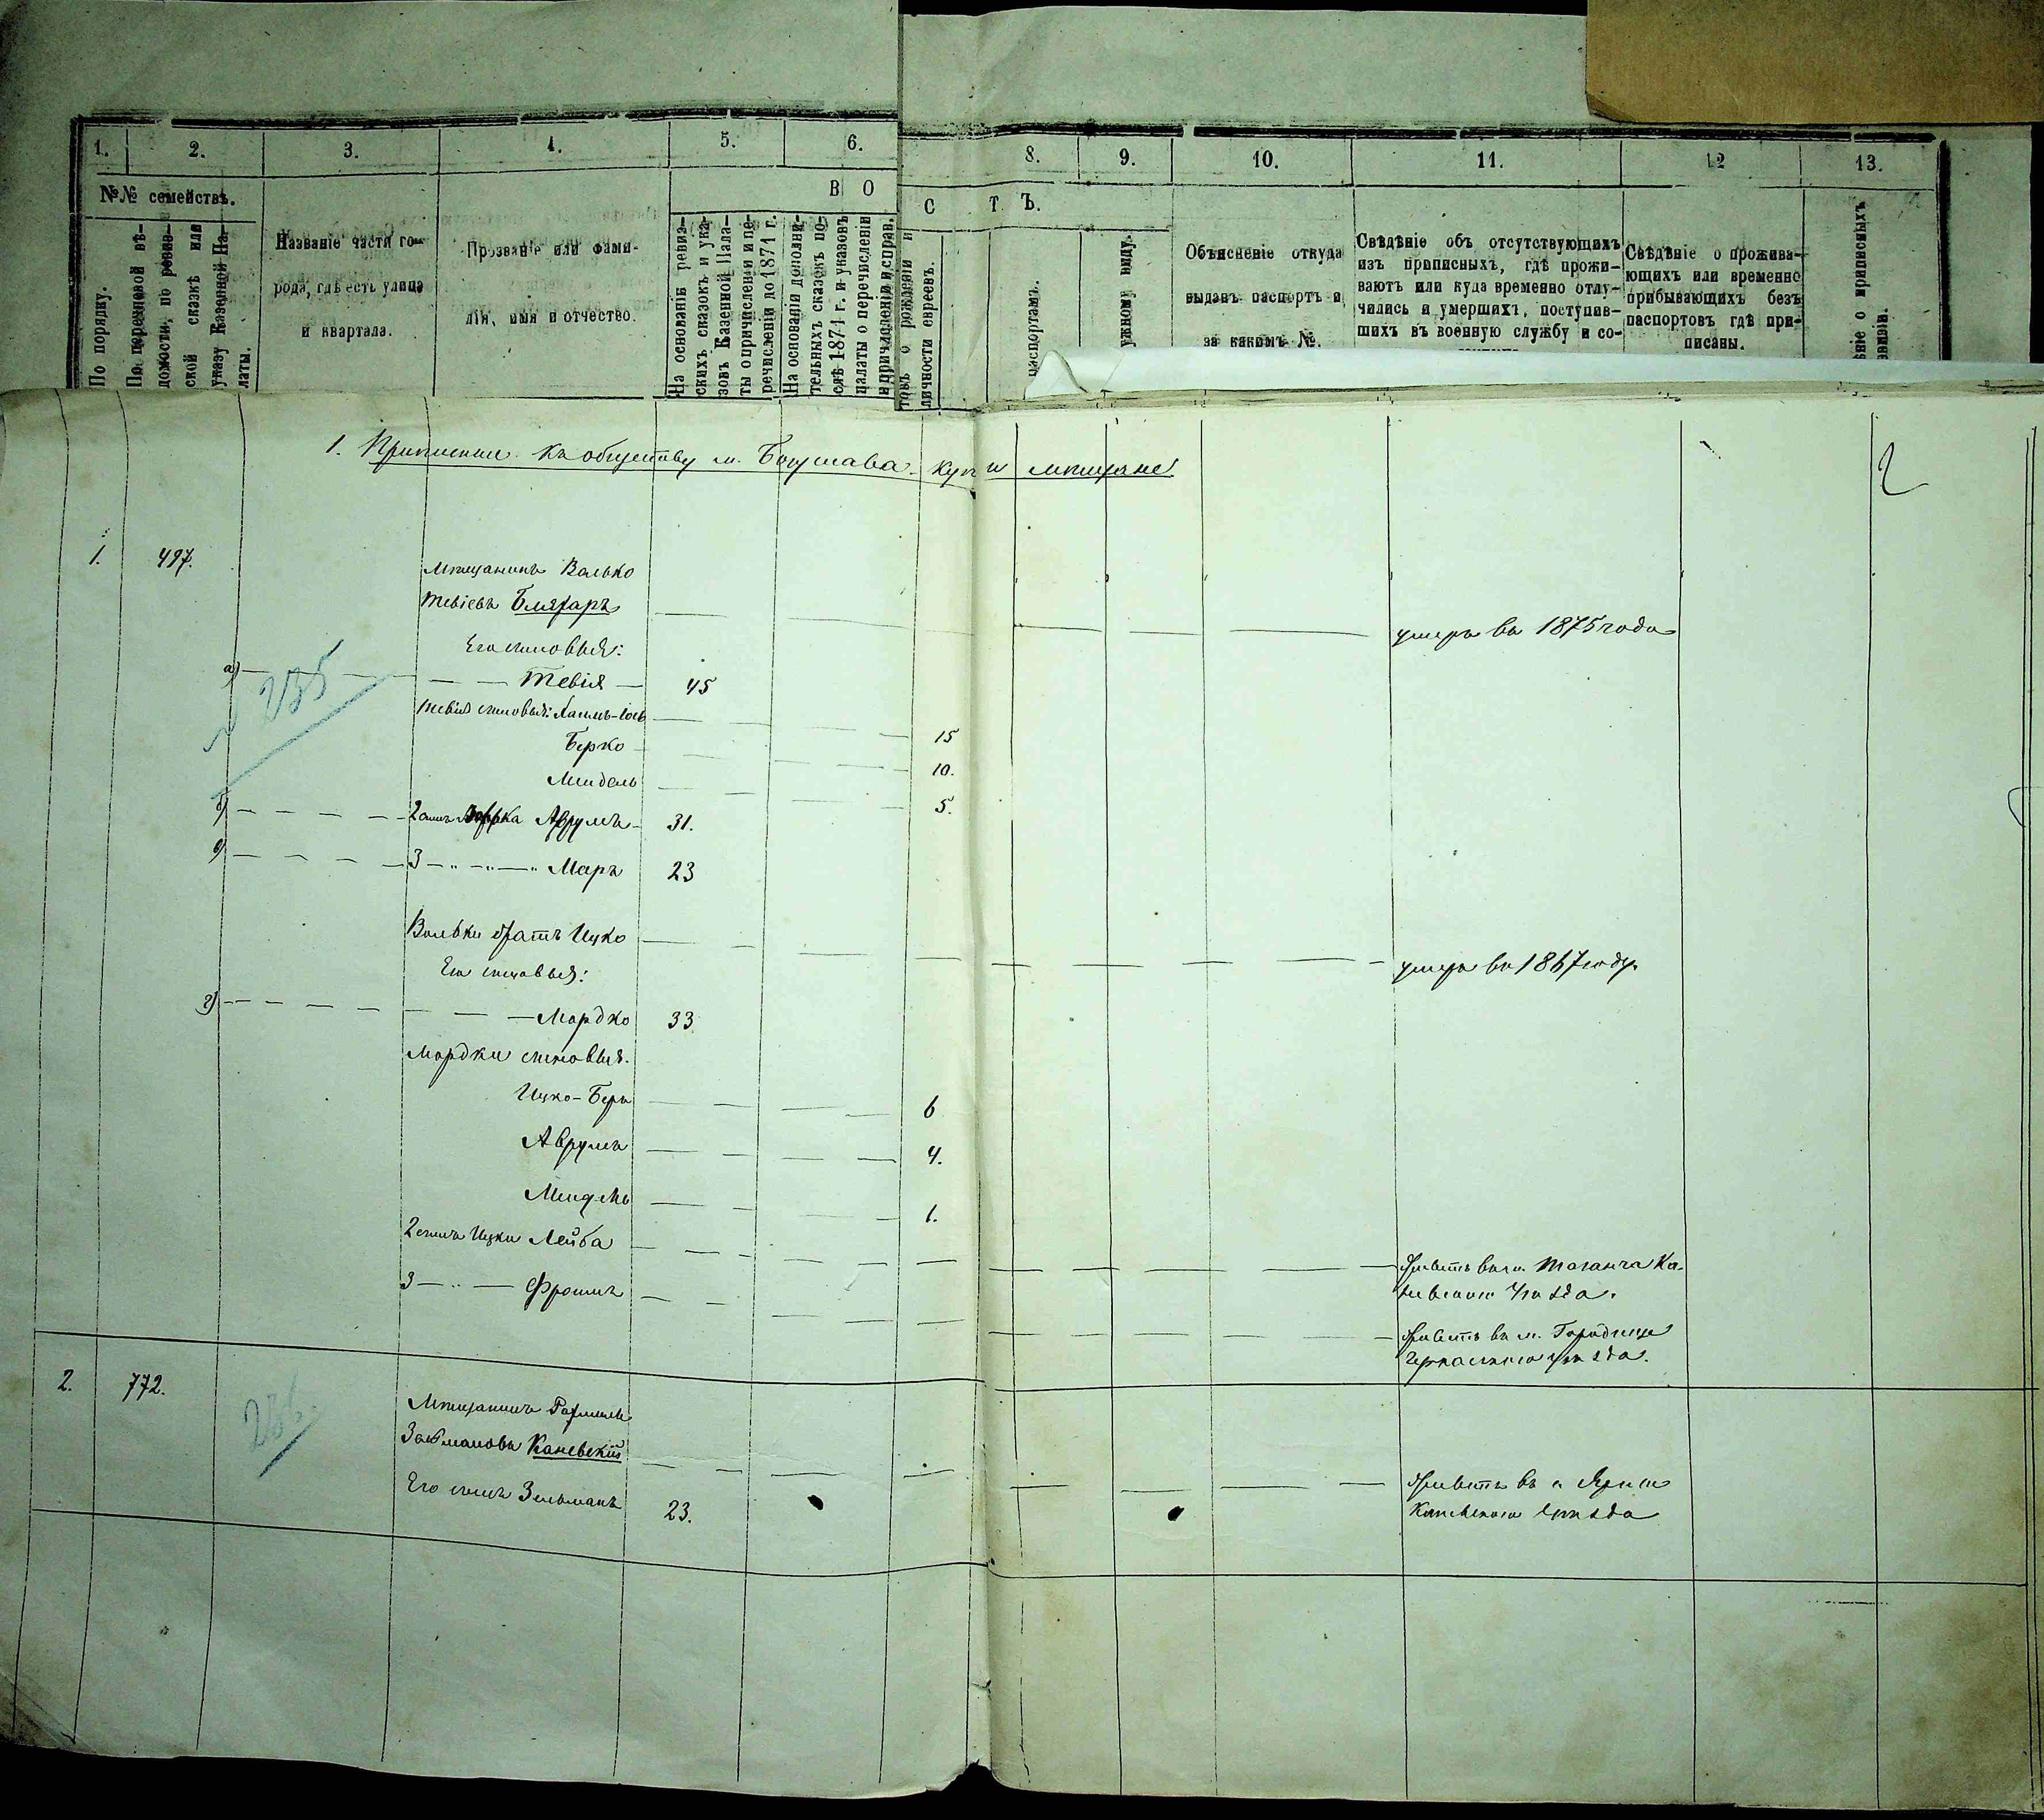 1. 2. 3. 4. 5. 6. 8. 9. 10. 11. 12 13.
№№ семействъ.
По порядку.
По перечневой вѣ-
домости, по ревиз-
ской сказкѣ или
указу Казенной Па-
латы.
Названіе части го-
рода, гдѣ есть улица
и квартала.
Прозваніе или фами-
лія, имя и отчество.
В О
С Т Ъ.
На основаніи ревиз-
скихъ сказокъ и ука-
зовъ Казенной Пала-
ты о причисленіи и пе-
речисленіи до 1871 г.
На основаніи дополни-
тельныхъ сказокъ по-
слѣ 1874 г. и указовъ
палаты о перечисленіи
и причисленіи и справ.
товъ о рожденіи и
личности евреевъ.
паспортамъ.
ужному виду.
Объясненіе откуда
выданъ паспортъ и
за какимъ №.
Свѣдѣніе объ отсутствующихъ
изъ приписныхъ, гдѣ прожи-
ваютъ или куда временно отлу-
чились и умершихъ, поступив-
шихъ въ военную службу и со-
Свѣдѣніе о прожива-
ющихъ или временно
прибывающихъ безъ
паспортовъ гдѣ при-
писаны.
ніе о приписныхъ
2
1. къ обществу м. Богуслава. куп и мѣщане
1. 497.
Мѣщанинъ Волько
Тевіевъ Бляхаръ умеръ въ 1875 года
Его сыновья:
а) Тевія 45
235
Тевія сыновья: Хаимъ-Іось 15
Берко 10.
Мендель 5.
б) 2 сынъ Аврумъ 31.
в) 3 Маръ 23
Вольки братъ Ицко умеръ въ 1867 году.
Его сыновья:
г) Мордко 33
Мордки сыновья.
Ицко-Беръ 6
Аврумъ 4.
Мендель 1.
2 сынъ Ицки Лейба живетъ въ м. Таганча Ка-
невскаго уѣзда.
3 Фроимъ живетъ въ м. Городище
Черкасскаго уѣзда.
2. 772.
Мѣщанинъ
Каневскій
Его сынъ Зельманъ 23.
живетъ въ
Каневскаго уѣзда